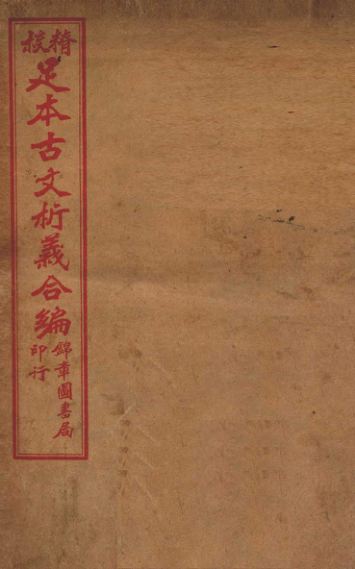 精校
足本古文析義合編
錦章圖書局
印行